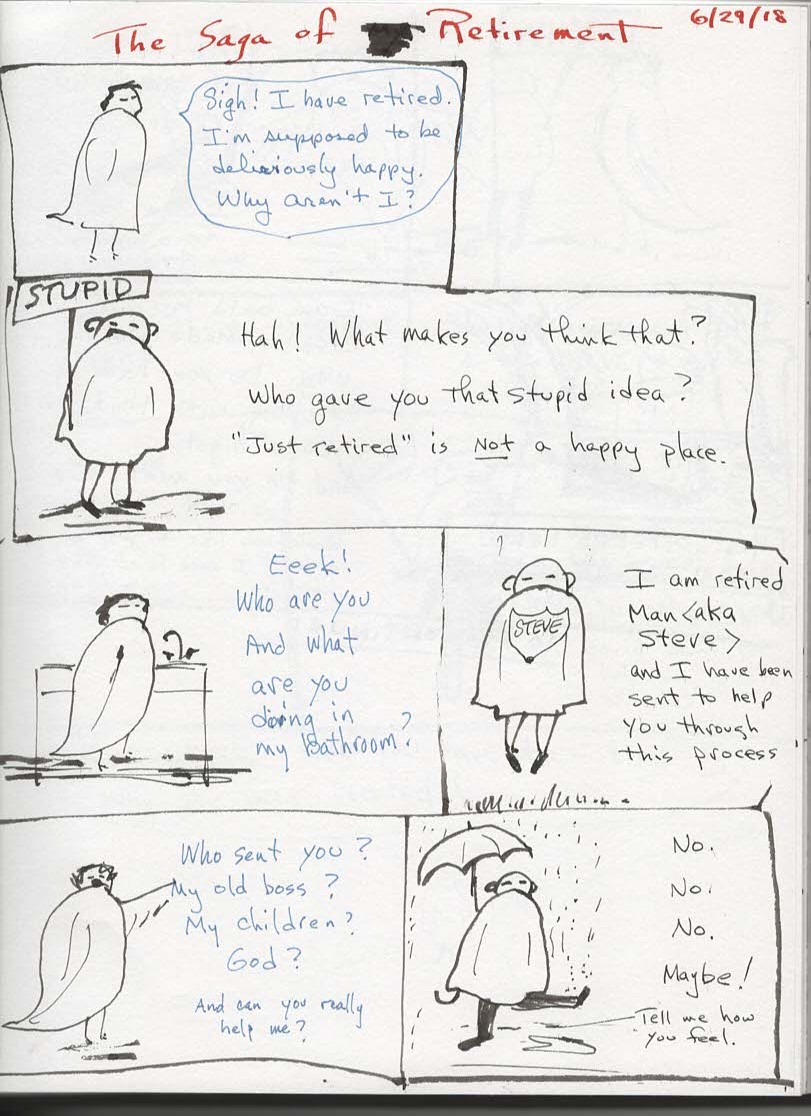 The Saga of Retirement
6/29/18
Sigh! I have retired.
I'm supposed to be
deliriously happy.
Why aren't I?
STUPID
Hah! What makes you think that?
Who gave you that stupid idea?
"Just retired" is Not a happy place.
Eeek!
Who are you
And what
are you
doing in
my Bathroom?
STEVE
I am retired
Man <aka
Steve>
and I have been
sent to help
you through
this process
Who sent you?
My old boss?
My children?
God?
And can you really
help me?
No.
No.
No.
Maybe!
Tell me how
you feel.